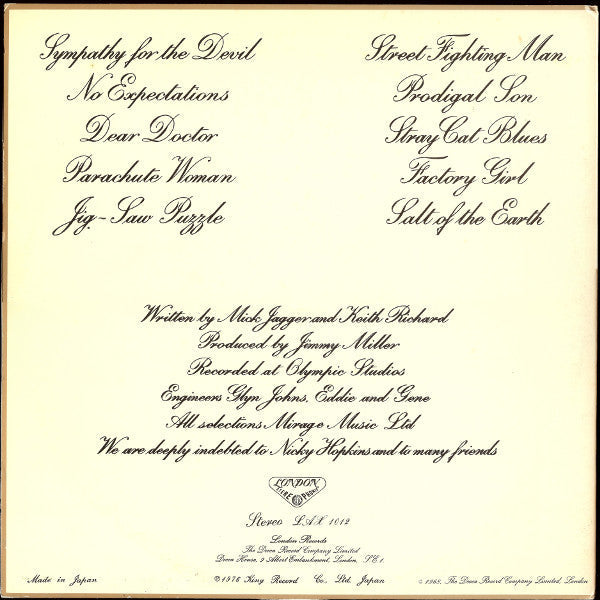 Sympathy for the Devil
No Expectations
Dear Doctor
Parachute Woman
Jig-Saw Puzzle
Street Fighting Man
Prodigal Son
Stray Cat Blues
Factory Girl
Salt of the Earth
Written by Mick Jagger and Keith Richard
Produced by Jimmy Miller
Recorded at Olympic Studios
Engineers Glyn Johns, Eddie and Gene
All selections Mirage Music Ltd
We are deeply indebted to Nicky Hopkins and to many friends
LONDON
Stereo LAX 1012
London Records
The Decca Record Company Limited
Decca House, 9 Albert Embankment, London, S.E.1.
Made in Japan
℗1976 King Record Co., Ltd. Japan
© 1968, The Decca Record Company Limited, London